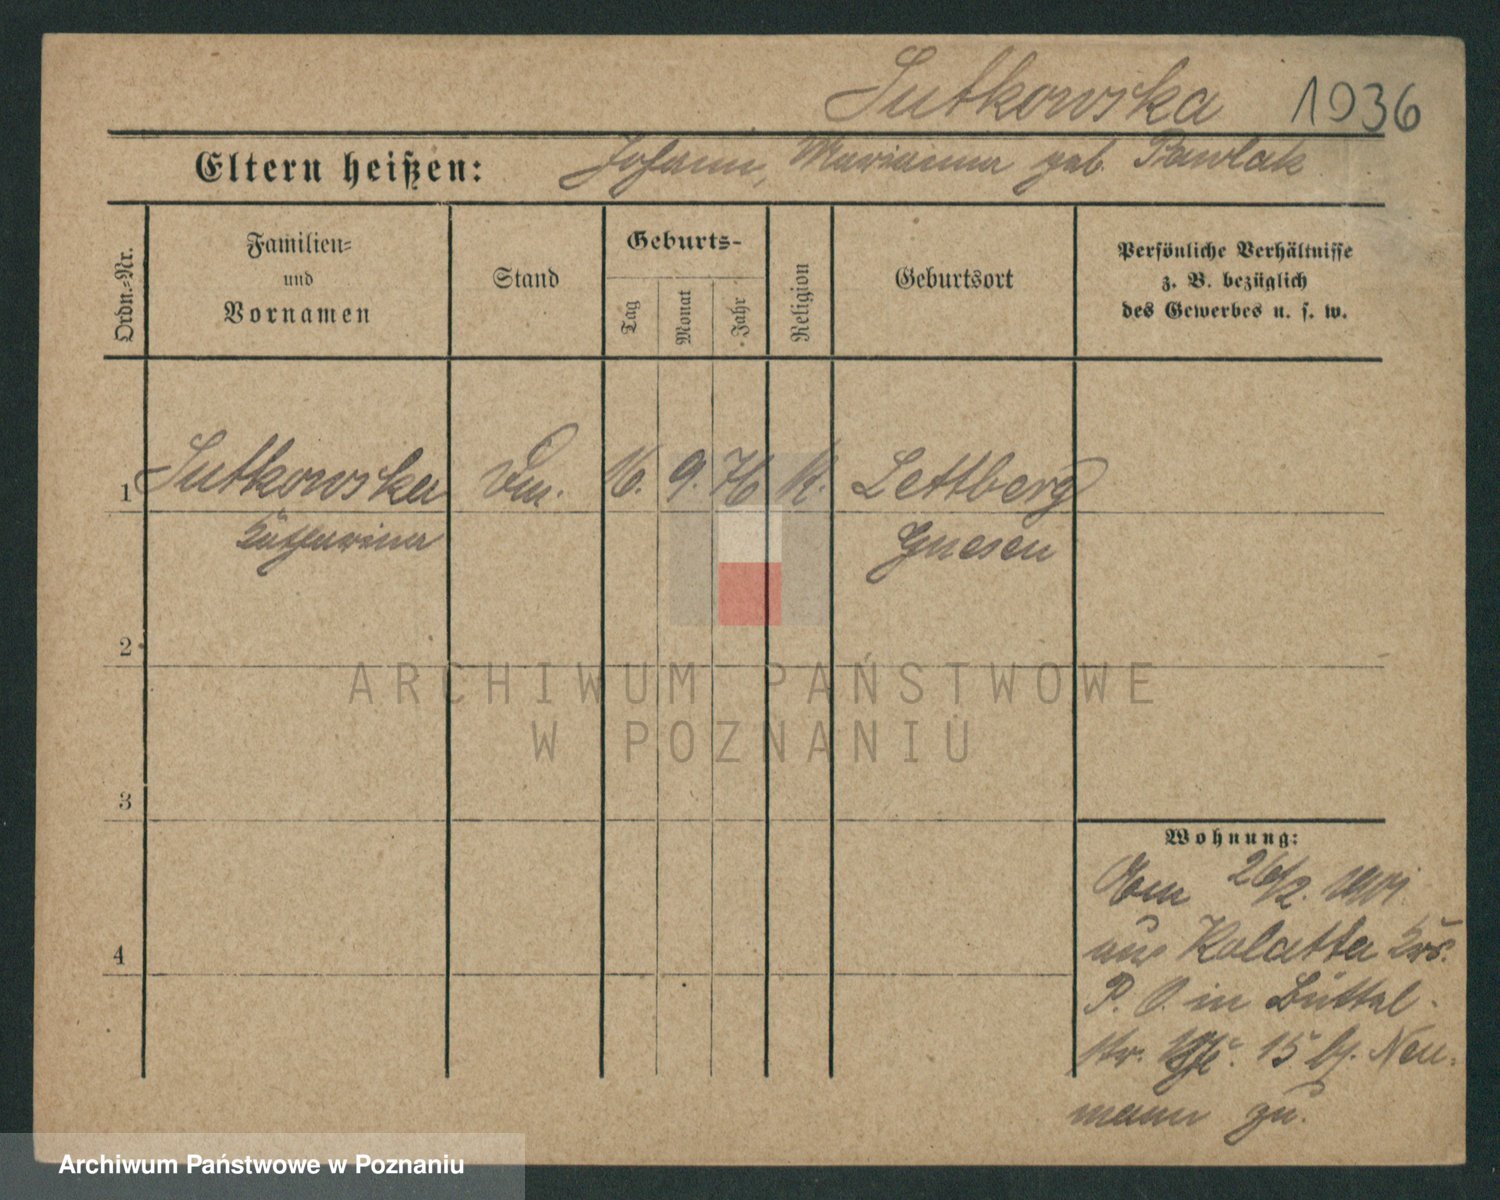 Sutkowska 1936
Eltern heißen: Johann, Marianna geb. Pawlak
Ordn.-Nr.
Familien-
und
Vornamen
Stand
Geburts-
Tag
Monat
Jahr
Religion
Geburtsort
Persönliche Verhältnisse
z. B. bezüglich
des Gewerbes u. s. w.
1 Sutkowska 16. 9. 76 K. Lettberg
Katharina Gnesen
2
3
4
Wohnung:
26/2. 1901
aus Kolatka Krs.
P. O. in Büttel-
str. 15 bj. Neu-
mann zu.
ARCHIWUM PAŃSTWOWE
W POZNANIU
Archiwum Państwowe w Poznaniu